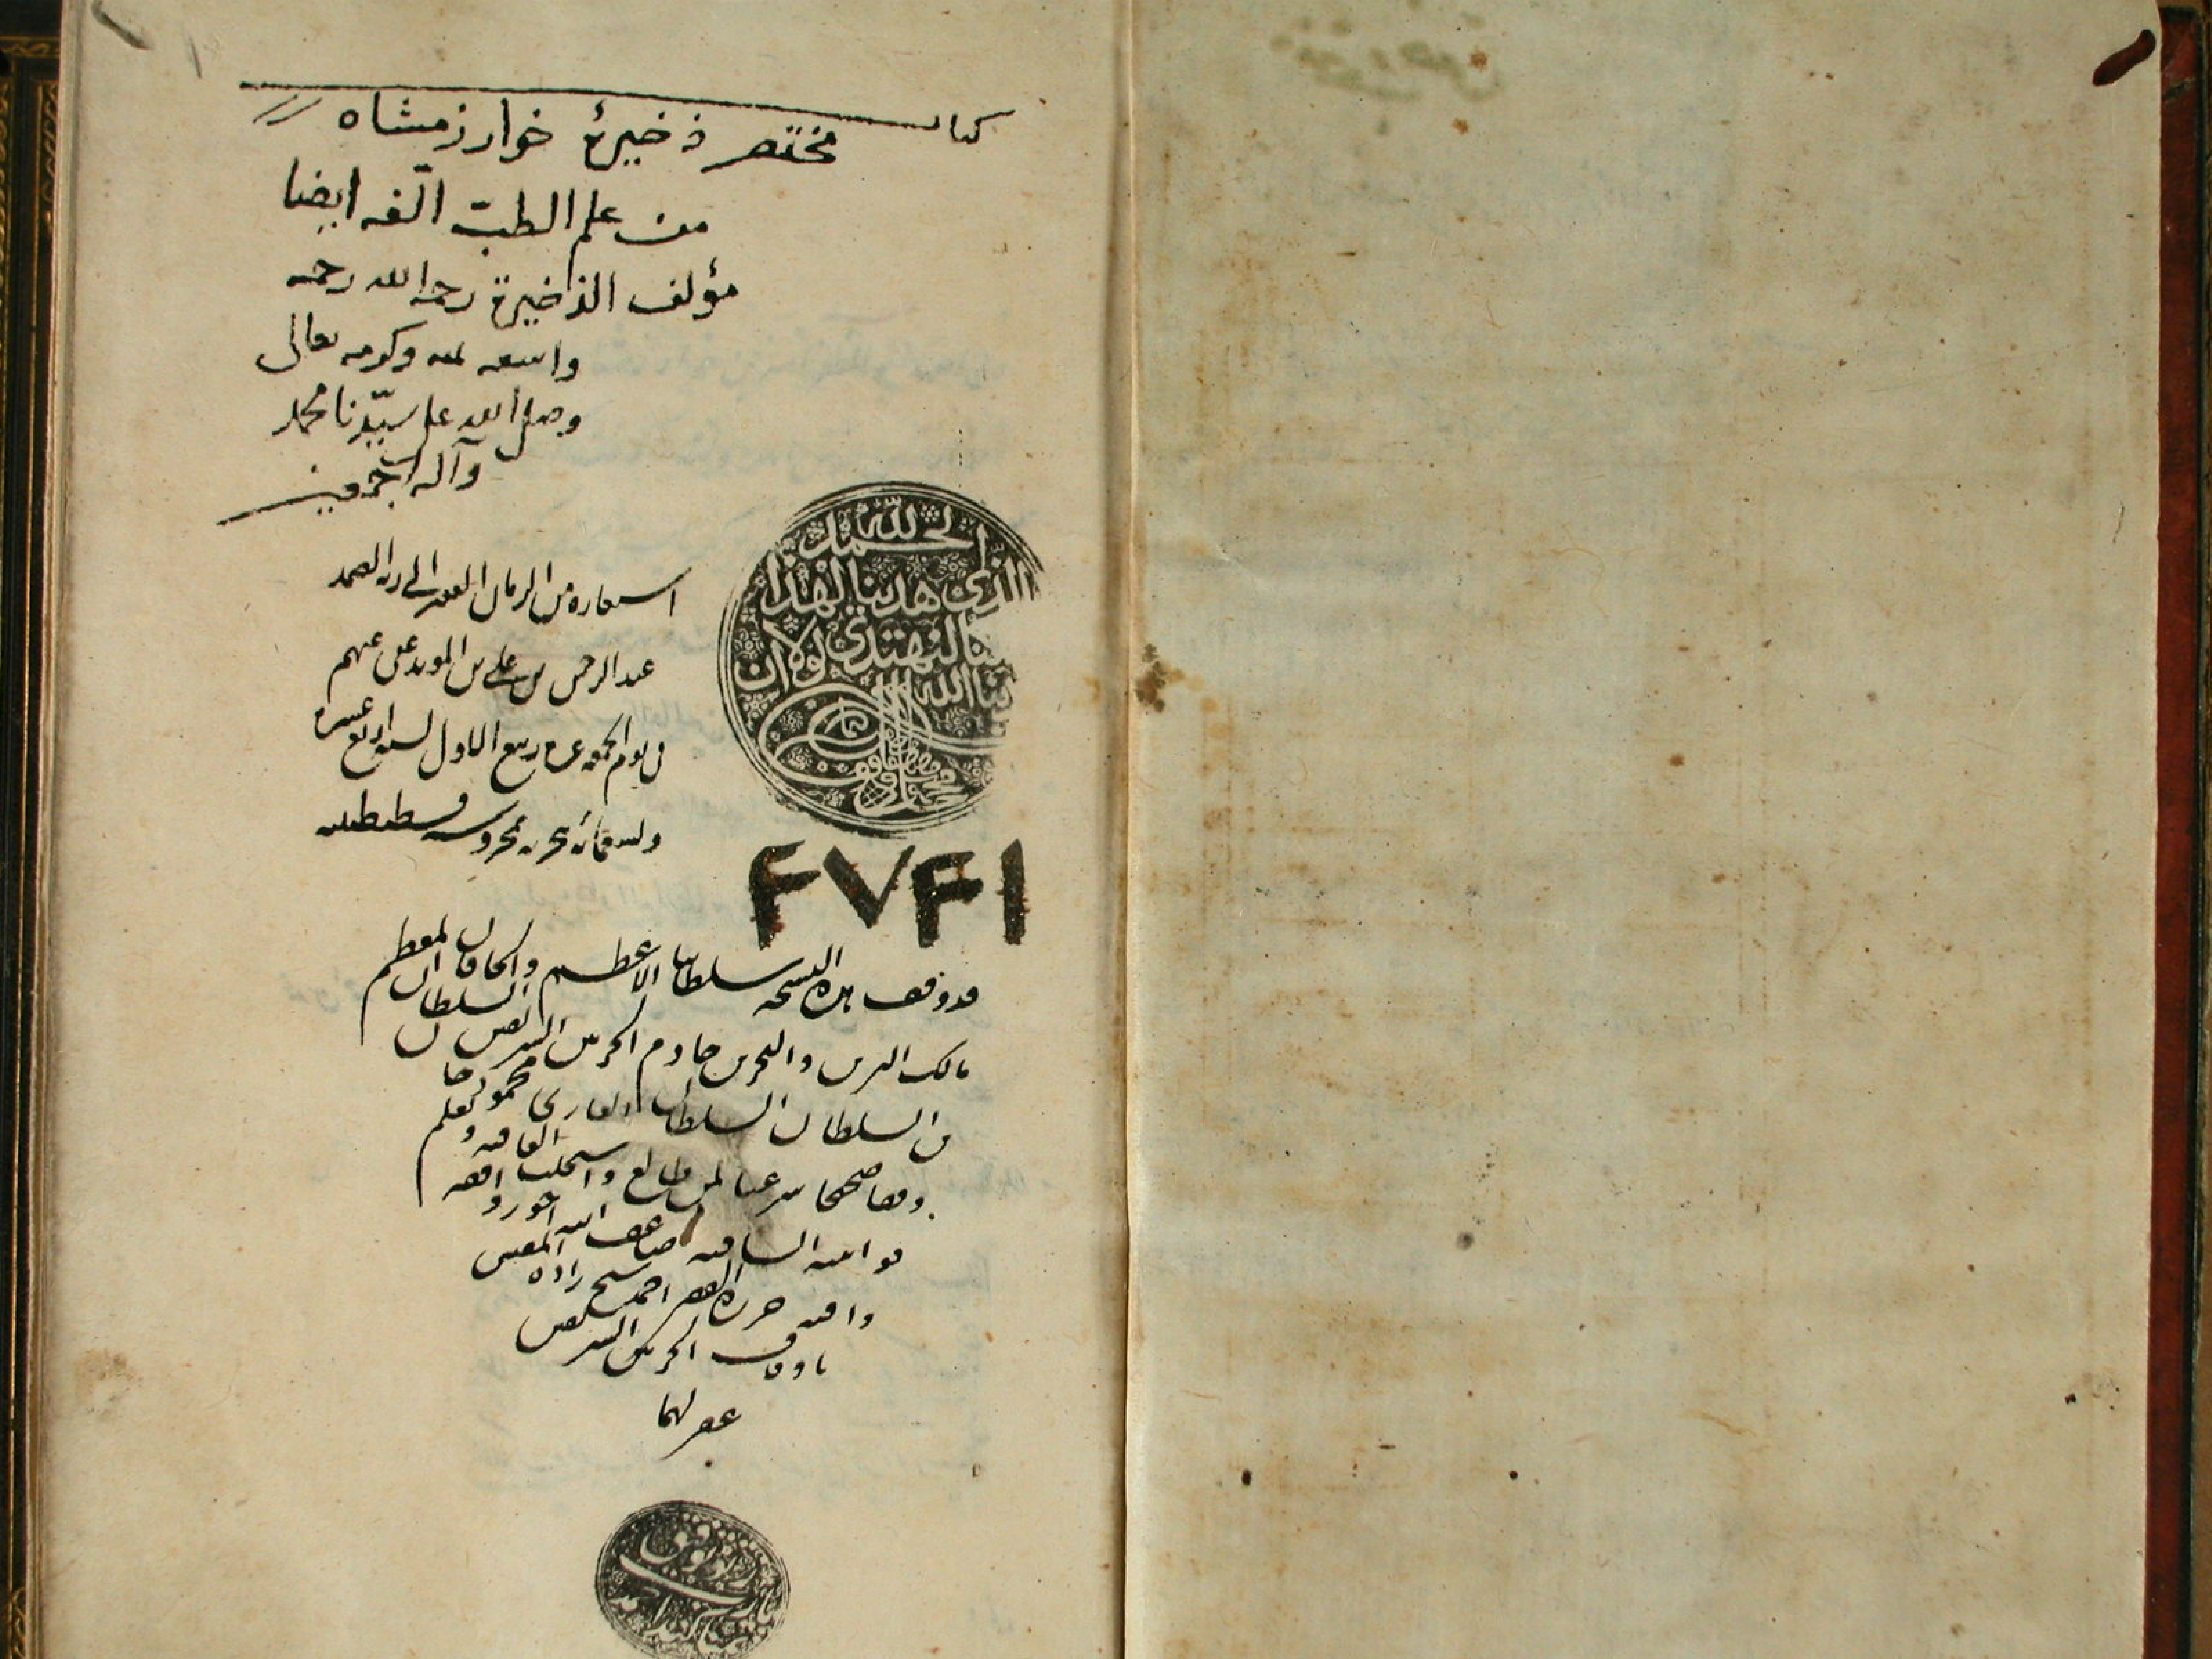 كتاب
مختصر ذخيرۀ خوارزمشاه
من علم الطبّ الّفه ايضا
مؤلف الذخيرة رحمه الله رحمة
واسعه بمنه وكرمه تعالى
وصلى الله على سيّدنا محمد
وآله اجمعين
استعاره من الزمان الفقير الى ربه الصمد
عبد الرحمن بن على بن المويد عفى عنهم
فى يوم الجمعه ربيع الاول لسنه اربع عشره
وتسعمائه هجريه بمحروسه قسطنطنيه
الحمد لله
الذى هدينا لهذا
كنا لنهتدى لولا ان
هدينا الله
محمود مظفر
۴۷۴۱
قد وقف هذه النسخه سلطاننا الاعظم والخاقان المعظم
مالك البرين والبحرين خادم الحرمين الشريفين السلطان
بن السلطان السلطان الغازى محمود خان
وقفا صحيحا شرعيا لمن طالع
حرره الفقير احمد شيخ زاده المفتش
باوقاف الحرمين الشريفين
غفر لهما